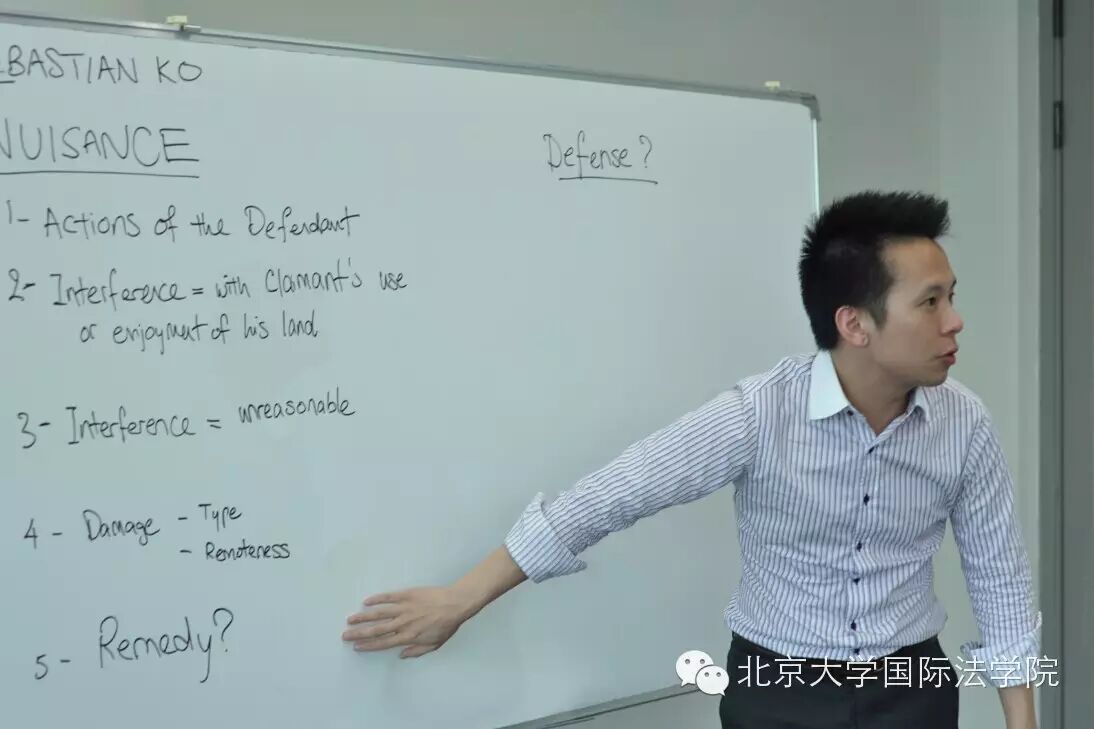 EBASTIAN KO
NUISANCE
Defense?
1- Actions of the Defendant
2- Interference = with Claimant's use
or enjoyment of his land
3- Interference = unreasonable
4 - Damage - Type
- Remoteness
5 - Remedy?
北京大学国际法学院